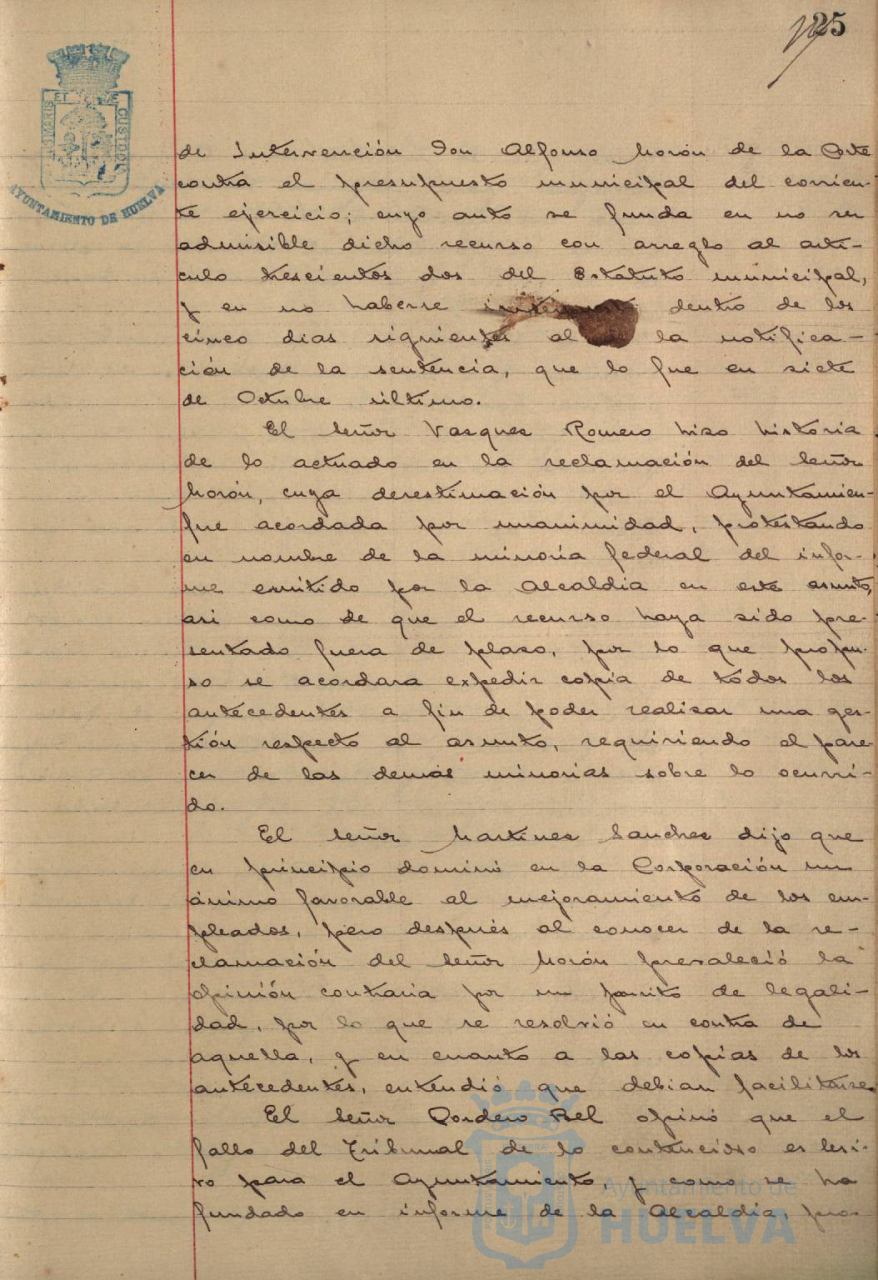 25
PORTUS MARIS ET TERRAE CUSTODIA
AYUNTAMIENTO DE HUELVA
de Intervención Don Alfonso Morón de la Corte
contra el presupuesto municipal del corrien-
te ejercicio; cuyo auto se funda en no ser
admisible dicho recurso con arreglo al artí-
culo trescientos dos del Estatuto municipal,
y en no haberse dentro de los
cinco dias siguientes al la notifica-
ción de la sentencia, que lo fue en siete
de Octubre último.
El Señor Vasquez Romero hizo historia
de lo actuado en la reclamación del Señor
Morón, cuya desestimación por el Ayuntamien-
fue acordada por unanimidad, protestando
en nombre de la minoria federal del infor-
me emitido por la Alcaldia en este asunto,
asi como de que el recurso haya sido pre-
sentado fuera de plazo, por lo que propu-
so se acordara expedir copia de todos los
antecedentes a fin de poder realizar una ges-
tión respecto al asunto, requiriendo el pare-
cer de las demás minorias sobre lo ocurri-
do.
El Señor Martinez Sanchez dijo que
en principio dominó en la Corporación un
ánimo favorable al mejoramiento de los em-
pleados, pero después al conocer de la re-
clamación del Señor Morón prevaleció la
opinión contraria por un purito de legali-
dad, por lo que se resolvió en contra de
aquella, y en cuanto a las copias de los
antecedentes, entendió que debian facilitarse.
El Señor Cordero Bel opinó que el
fallo del Tribunal de lo contencioso es lesi-
vo para el Ayuntamiento, y como se ha
fundado en informe de la Alcaldia, pro-
Ayuntamiento de
HUELVA